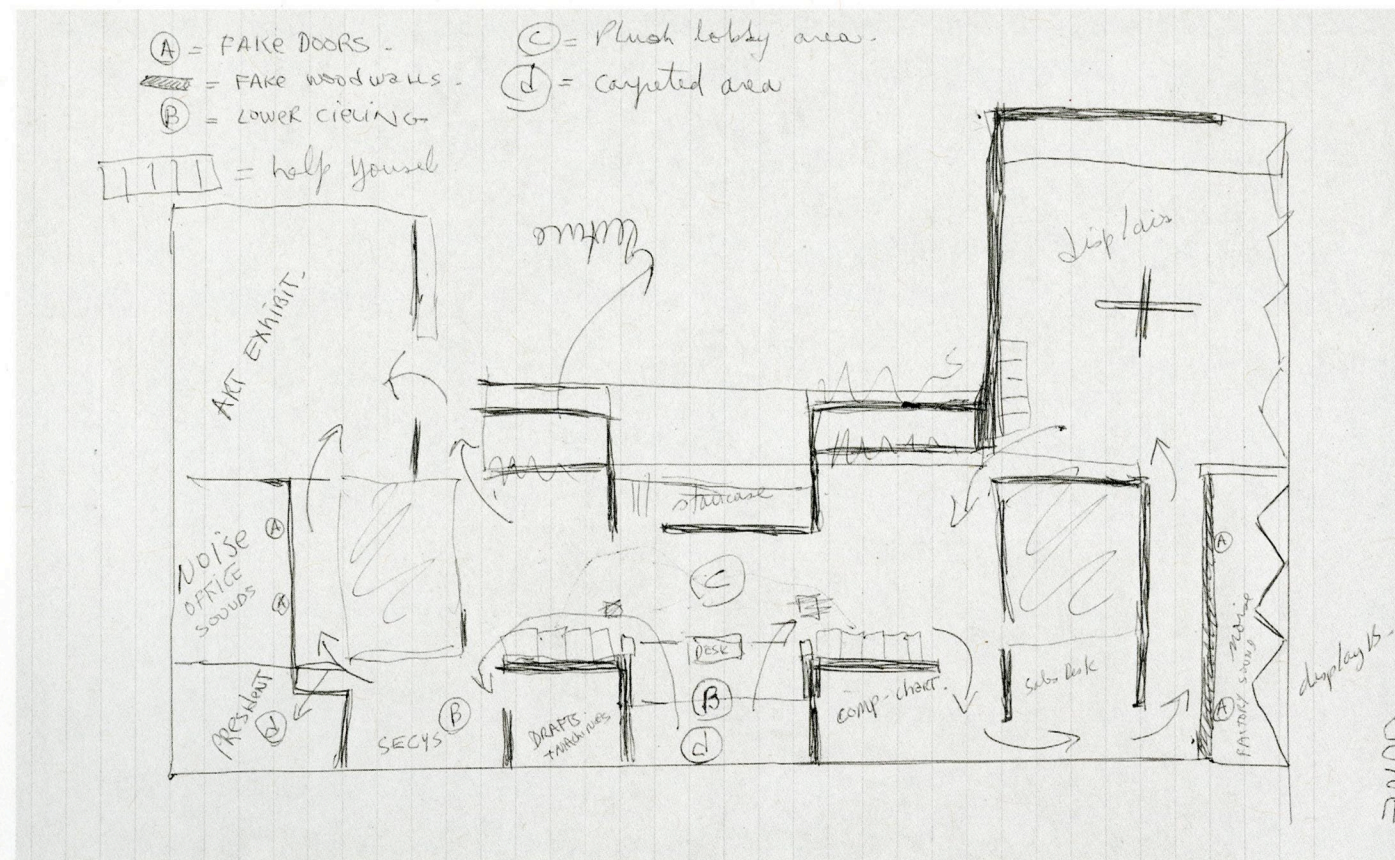 A = FAKE DOORS -
= FAKE WOODWALLS -
B = LOWER CIELING
C = Plush lobby area -
d = carpeted area
= help yoursel
ART EXHIBIT.
lecture
displais
staircase
NOISE
OFFICE
SOUNDS
A
A
C
DESK
PRESIDENT
d
SECYS
B
DRAFTS
+ MACHINES
B
d
comp-chart.
Sales Desk
A
A
NOISE
FACTORY SOUND
displays